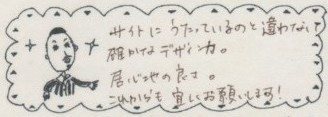 サイトにうたっているのと違わない
確かなデザイン力。
居心地の良さ。
これからも宜しくお願いします!